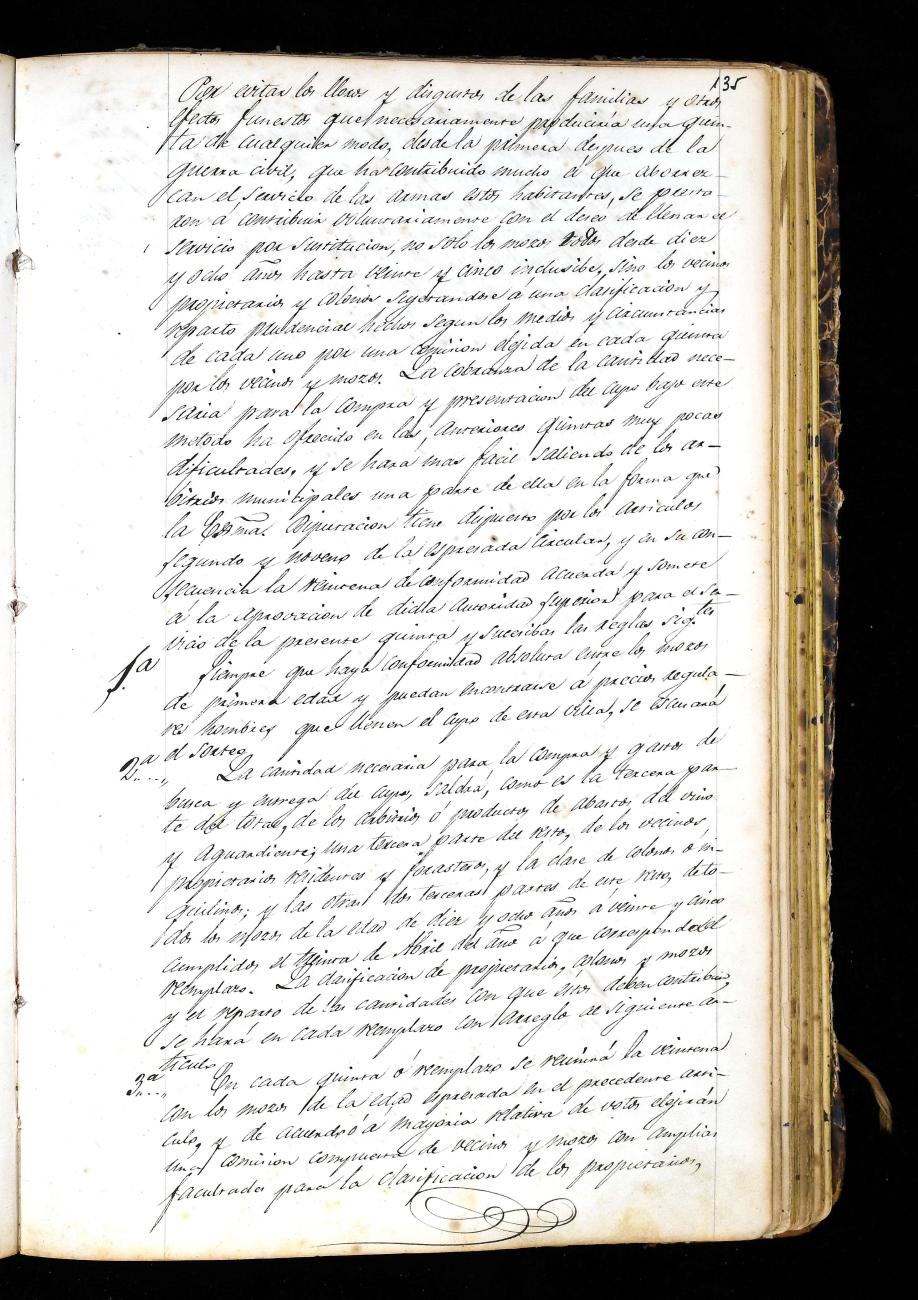 135
Por evitar los lloros y disgustos de las familias y otros
efectos funestos que necesariamente produciria una quin-
ta de cualquier modo, desde la primera despues de la
guerra civil, que ha contribuido mucho á que aborrez-
can el servicio de las armas estos habitantes, se presta-
ron á contribuir voluntariamente con el deseo de llenar el
servicio por sustitucion, no solo los mozos todos desde diez
y ocho años hasta veinte y cinco inclusibe, sino los vecinos
propietarios y colonos sugetandose á una clasificacion y
reparto prudencial hechos segun los medios y circunstancias
de cada uno por una comision elejida en cada quinta
por los vecinos y mozos. La cobranza de la cantidad nece-
saria para la compra y presentacion del cupo bajo este
metodo ha ofrecido en las anteriores quintas muy pocas
dificultades, y se hará mas facil saliendo de los ar-
bitrios municipales una parte de ella en la forma que
la Exma. Diputacion tiene dispuesto por los articulos
segundo y noveno de la espresada circular, y en su con-
secuencia la veintena de conformidad acuerda y somete
á la aprovacion de dicha Autoridad superior para el ser-
vicio de la presente quinta y sucesibas las reglas sig.tes
1.a Siempre que haya conformidad absoluta entre los mozos
de primera edad y puedan encontrarse á precios regula-
res hombres que llenen el cupo de esta villa, se escusará
el sorteo
2.a La cantidad necesaria para la compra y gastos de
busca y entrega del cupo, saldrá, como es la tercera par-
te del total, de los arbitrios ó productos de abastos del vino
y aguardiente; una tercera parte del resto, de los vecinos,
propietarios residentes y forasteros, y la clase de colonos ó in-
quilinos; y las otras dos terceras partes de este resto, de to-
dos los mozos de la edad de diez y ocho años á veinte y cinco
cumplidos el treinta de Abril del año á que corresponde el
remplazo. La clasificacion de propietarios, colonos y mozos
y el reparto de las cantidades con que estos deben contribuir,
se hará en cada remplazo con arreglo al siguiente ar-
ticulo
3.a En cada quinta ó remplazo se reunirá la veintena
con los mozos de la edad espresada en el precedente arti-
culo, y de acuerdo ó á mayoria relativa de votos elejirán
una comision compuesta de vecinos y mozos con amplias
facultades para la clasificacion de los propietarios,